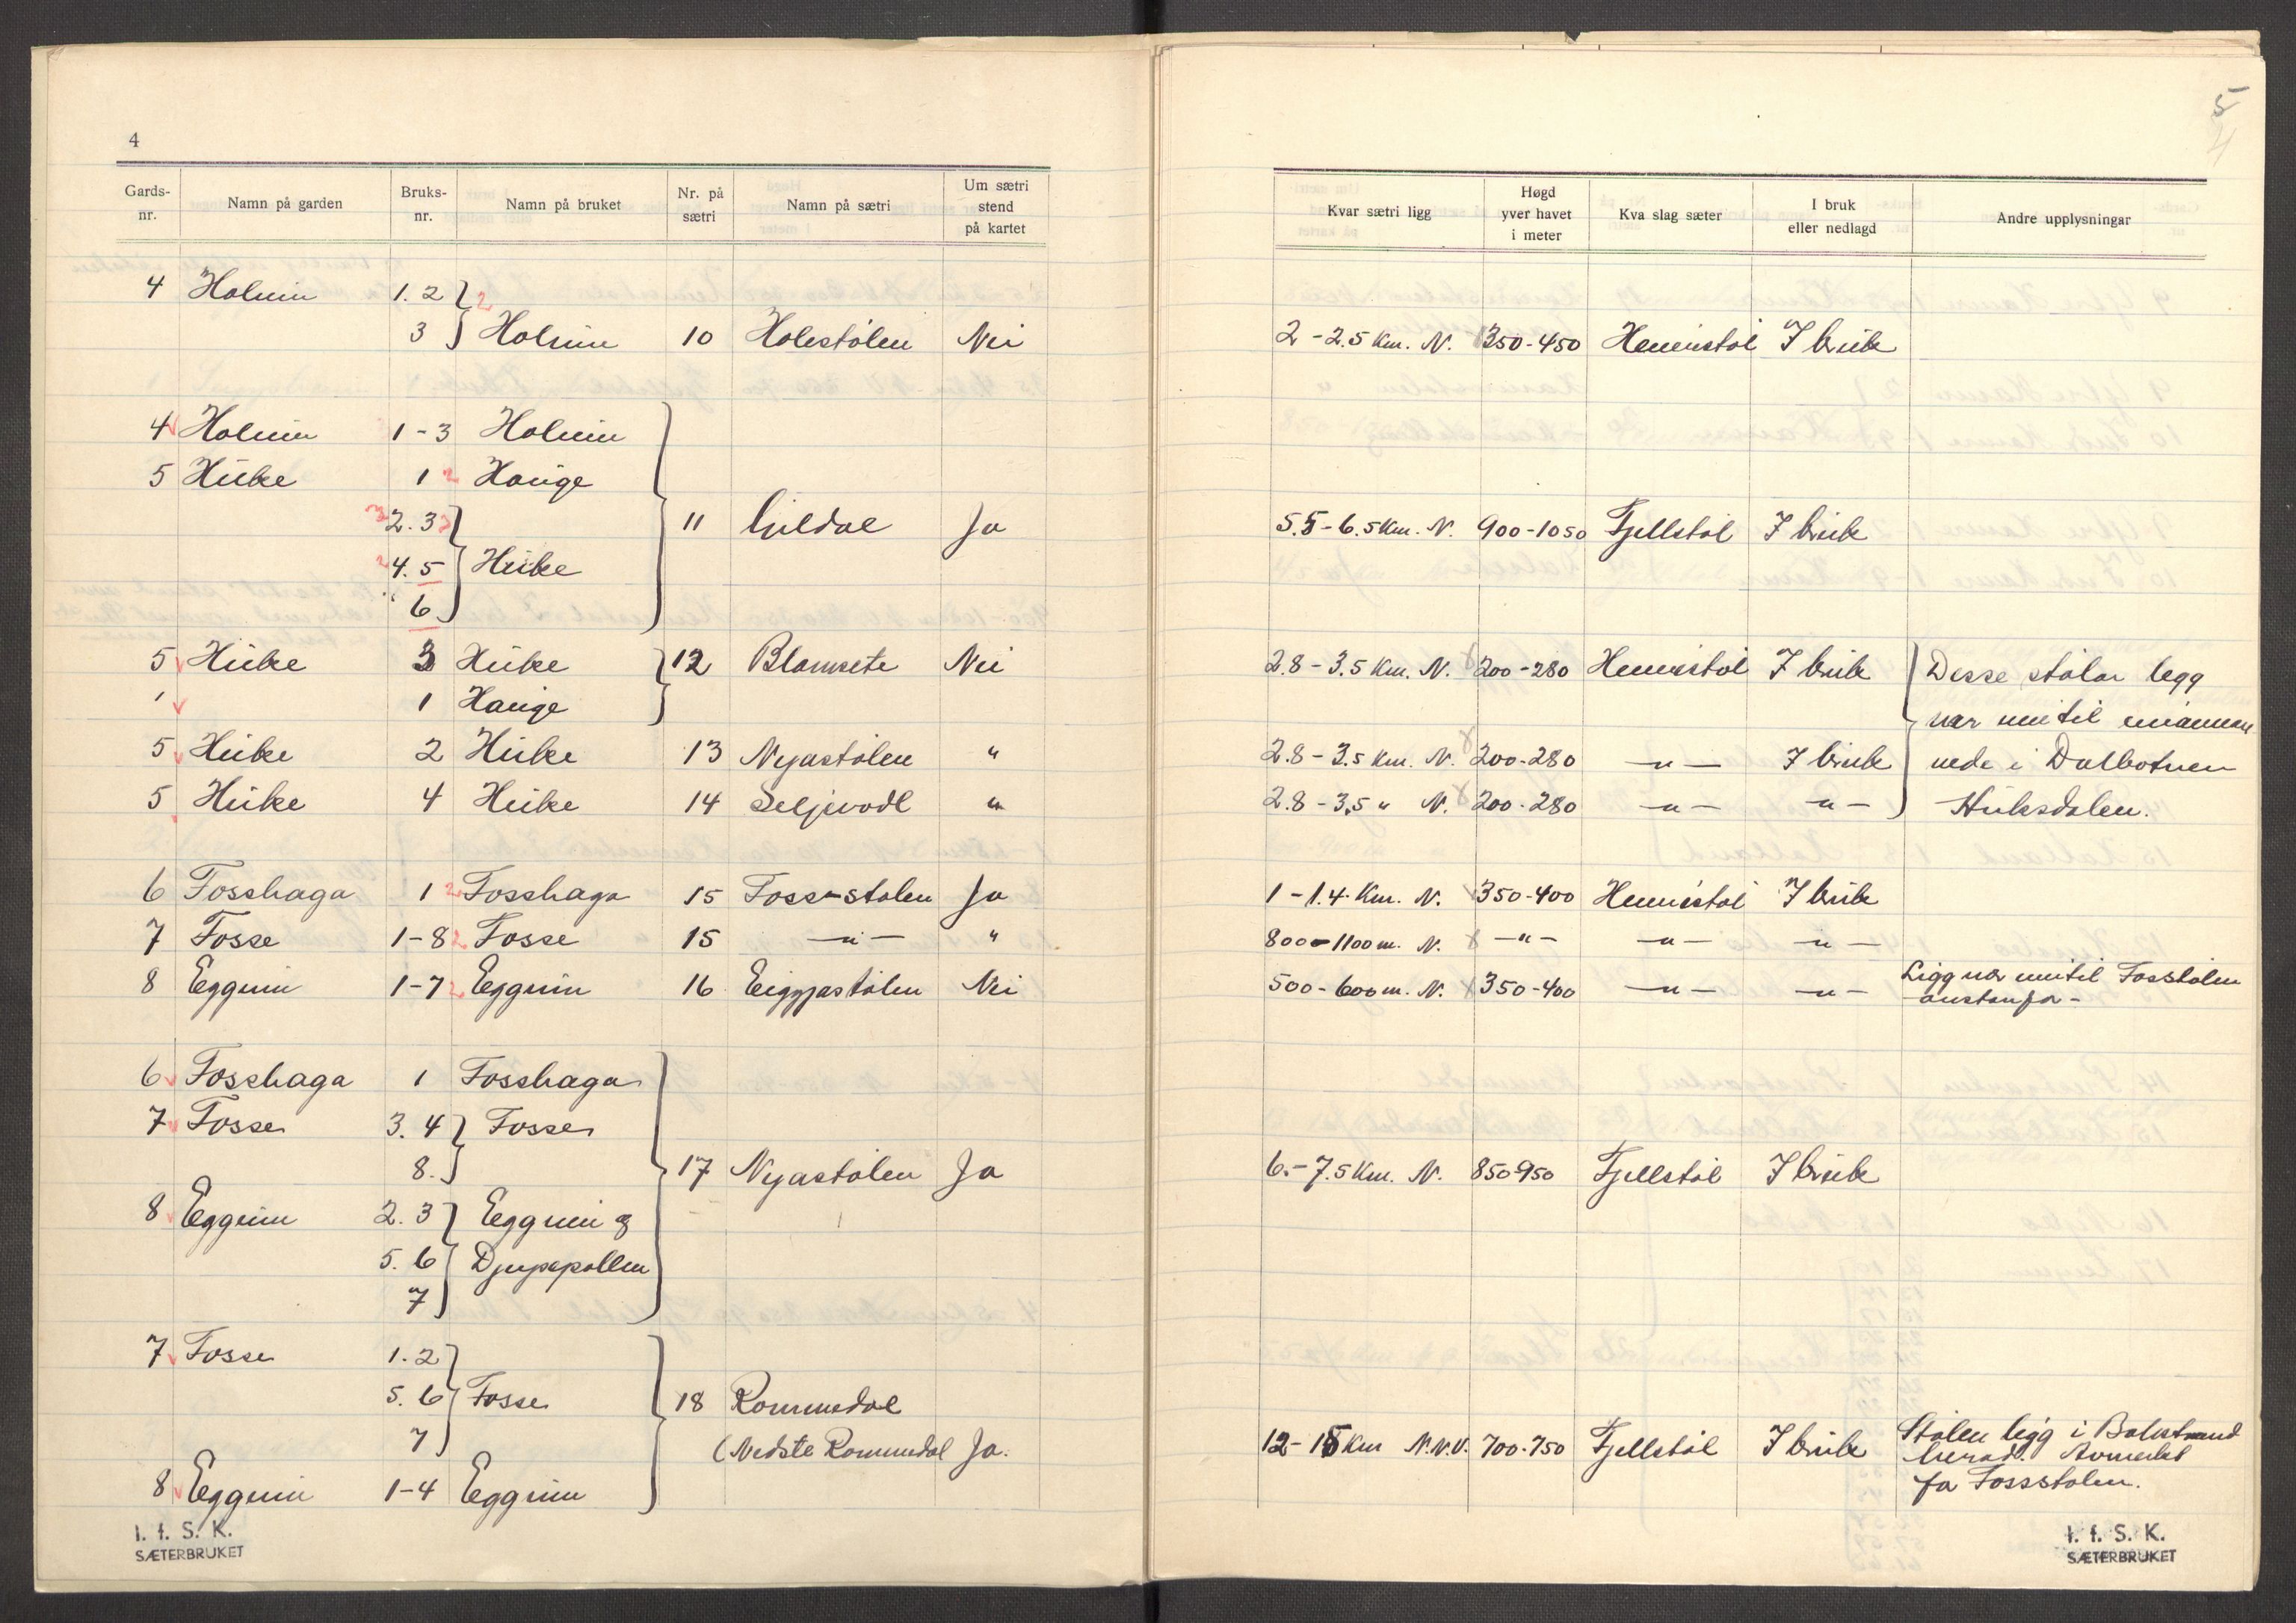 4
Gards-nr. Namn på garden Bruks-nr. Namn på bruket Nr. på sætri Namn på sætri Um sætri stend på kartet
4 Holum 1. 2
3 Holum 10 Holestølen Nei
4 Holum 1-3 Holum
5 Huke 1 Hauge
2. 3 11 Gildal Ja
4. 5 Huke
6
5 Huke 3 Huke 12 Blomsete Nei
1 Hauge
5 Huke 2 Huke 13 Nyastølen "
5 Huke 4 Huke 14 Seljevodl "
6 Fosshaga 1 Fosshaga 15 Foss-stølen Ja
7 Fosse 1-8 Fosse 15 -"- "
8 Eggum 1-7 Eggum 16 Eiggjastølen Nei
6 Fosshaga 1 Fosshaga
7 Fosse 3. 4 Fosse
8. 17 Nyastølen Ja
8 Eggum 2. 3 Eggum og
5. 6 Djupepollen
7
7 Fosse 1. 2
5. 6 Fosse 18 Rommedal
7 (Nedste Rommedal Ja.
8 Eggum 1-4 Eggum
I. f. S. K.
SÆTERBRUKET
5
4
Kvar sætri ligg Høgd yver havet i meter Kva slag sæter I bruk eller nedlagd Andre upplysningar
2-2.5 Km. N. 350-450 Heimstøl I bruk
5.5-6.5 Km. N. 900-1050 Fjellstøl I bruk
2.8-3.5 Km. N. 200-280 Heimstøl I bruk Desse stølar legg
nær intil einannan
2.8-3.5 Km. N. 200-280 -"- I bruk nede i Dalbotnen
2.8-3.5 " N. 200-280 -"- -"- Huksdalen.
1-1.4 Km. N. 350-400 Heimstøl I bruk
800-1100 m. N. -"- -"- -"-
500-600 m. N. 350-400 -"- -"- Ligg nær intil Fosstølen
austanfor-
6.-7.5 Km. N. 850-950 Fjellstøl I bruk
12-15 Km N.N.V. 700-750 Fjellstøl I bruk Stølen ligg i Balestrand
herad.
fra Fossstølen.
I. f. S. K.
SÆTERBRUKET